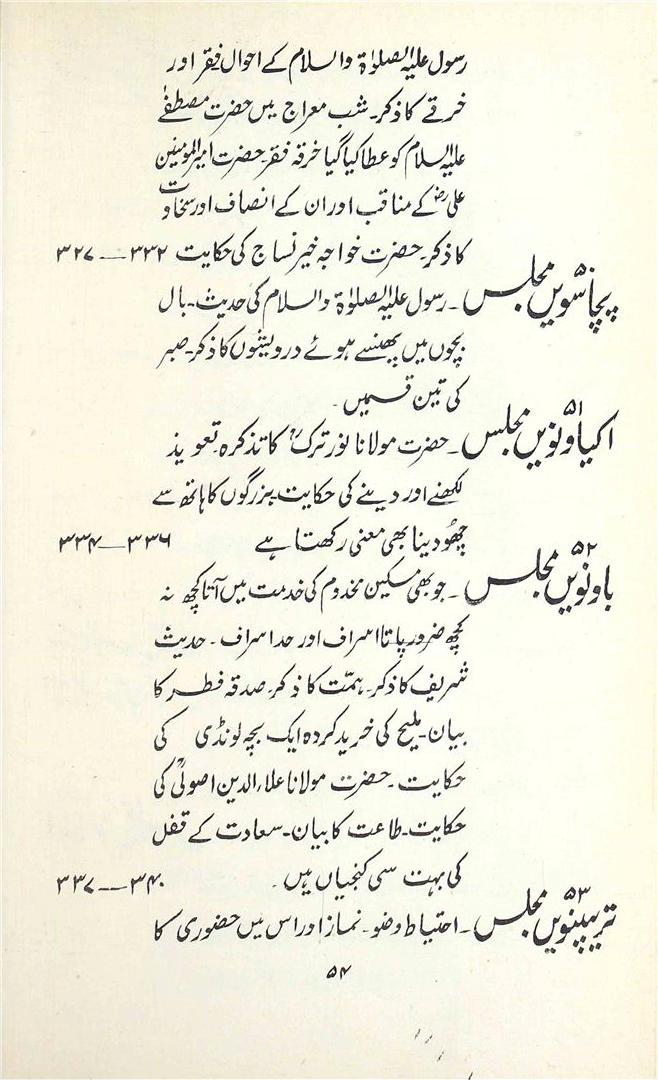 رسول علیہ الصلوٰۃ والسلام کے احوالِ فقر اور
خرقے کا ذکر۔ شب معراج میں حضرت مصطفےٰ
علیہ السلام کو عطا کیا گیا خرقہ فقر۔ حضرت امیر المومنین
علی رضؓ کے مناقب اور ان کے انصاف اور سخاوت
کا ذکر۔ حضرت خواجہ خیر نساج کی حکایت ۳۳۲—۳۲۷
پچاسویں ۵۰ مجلس ۔ رسول علیہ الصلوٰۃ والسلام کی حدیث۔ بال
بچوں میں پھنسے ہوئے درویشوں کا ذکر۔ صبر
کی تین قسمیں۔
اکیاونویں ۵۱ مجلس ۔ حضرت مولانا نور ترکؒ کا تذکرہ۔ تعویذ
لکھنے اور دینے کی حکایت۔ بزرگوں کا ہاتھ سے
چھُو دینا بھی معنی رکھتا ہے ۳۳۶—۳۳۴
باونویں ۵۲ مجلس ۔ جو بھی مسکین مخدوم کی خدمت میں آتا کچھ نہ
کچھ ضرور پاتا اسراف اور حد اسراف ۔ حدیث
شریف کا ذکر۔ ہمّت کا ذکر۔ صدقہ فطر کا
بیان۔ ملیح کی خرید کردہ ایک بچہ لونڈی کی
حکایت ۔ حضرت مولانا علاء الدین اصولیؒ کی
حکایت۔ طاعت کا بیان۔ سعادت کے قفل
کی بہت سی کنجیاں ہیں۔ ۳۴۰—۳۳۷
تریپنویں ۵۳ مجلس ۔ احتیاط وضو۔ نماز اور اس میں حضوری کا
۵۴